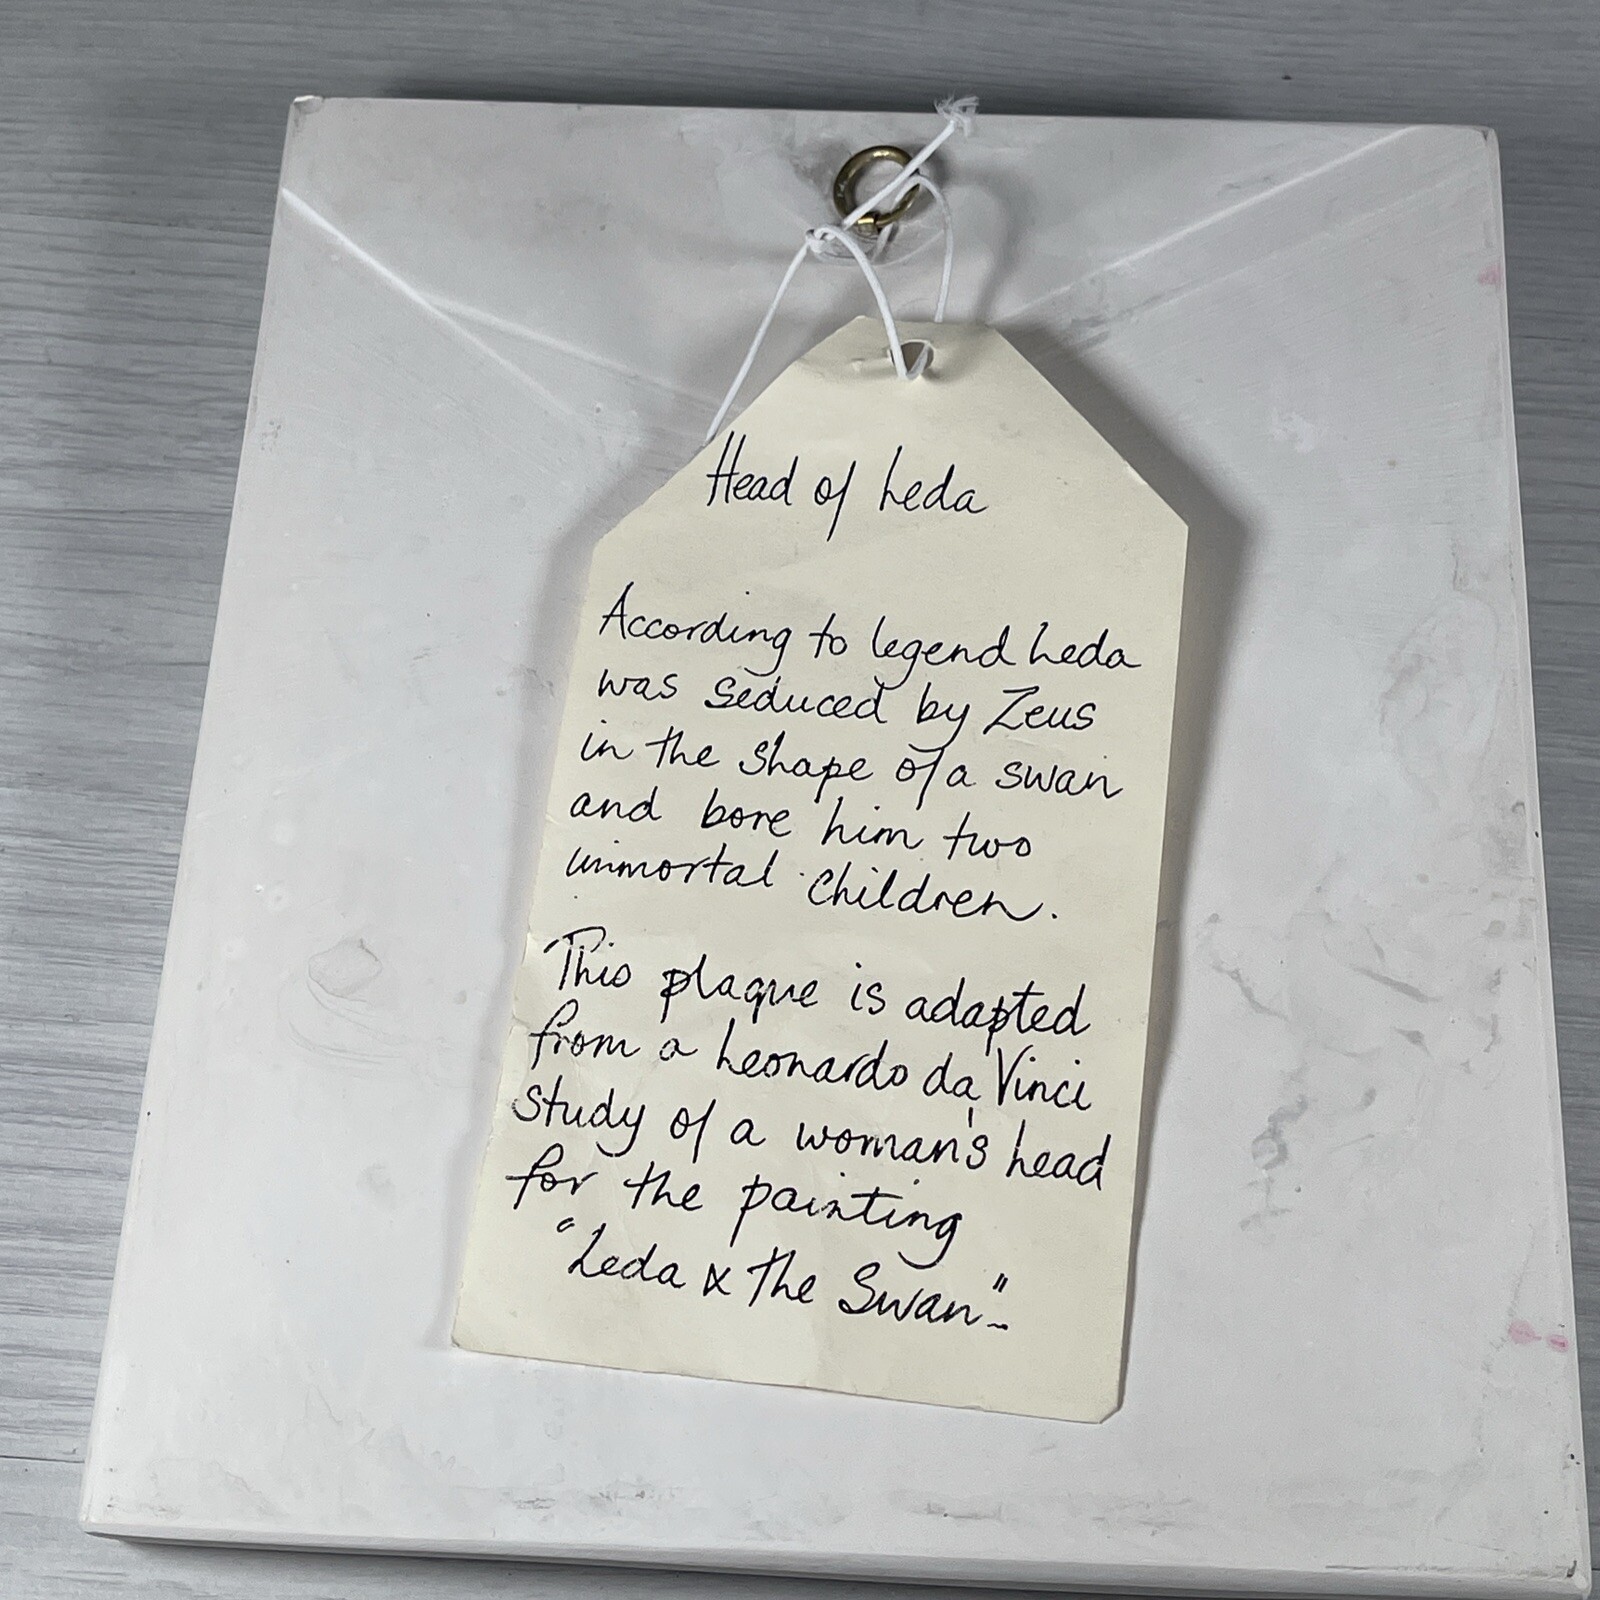 Head of Leda
According to legend Leda
was seduced by Zeus
in the shape of a swan
and bore him two
immortal children.
This plaque is adapted
from a Leonardo da Vinci
study of a woman's head
for the painting
"Leda & The Swan".